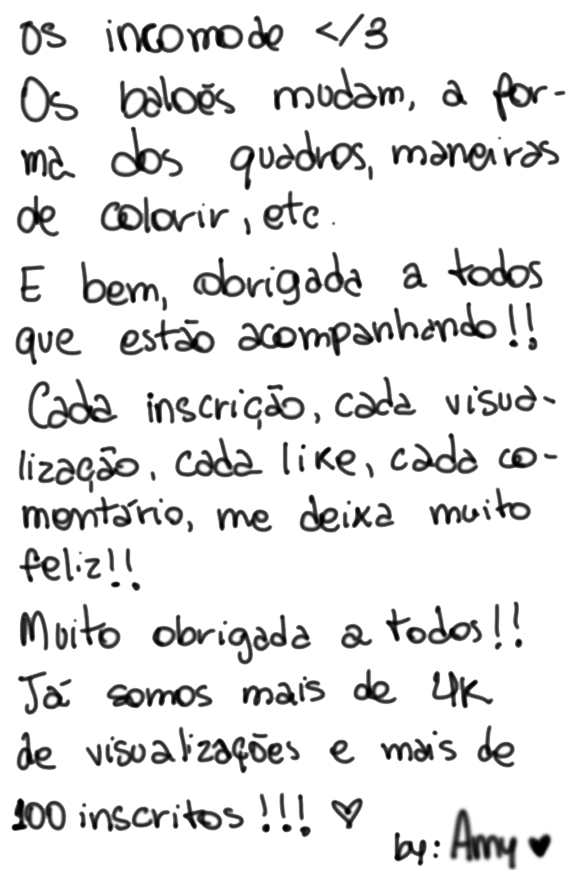 os incomode </3
Os balões mudam, a for-
ma dos quadros, maneiras
de colorir, etc.
E bem, obrigada a todos
que estão acompanhando!!
Cada inscrição, cada visua-
lização, cada like, cada co-
mentário, me deixa muito
feliz!!
Muito obrigada a todos!!
Já somos mais de 4K
de visualizações e mais de
100 inscritos!!! ♡
by: Amy ♥